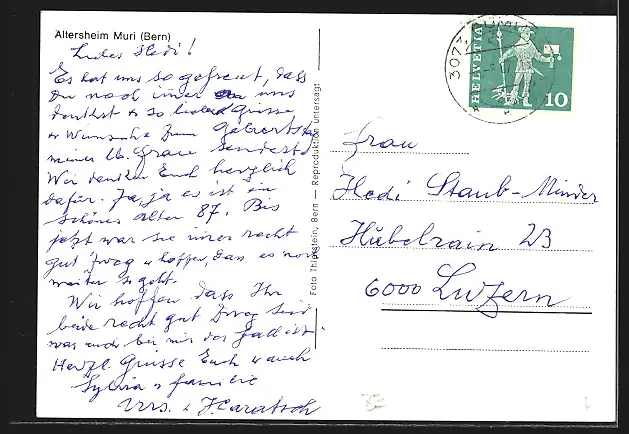 Altersheim Muri (Bern)
Liebes Hedi!
Es hat uns so gefreut, dass
Du noch imer an uns
denkst & so liebe Grüsse
& Wünsche zum Geburtstag
meiner lb. Frau sendest.
Wir danken Euch herzlich
dafür. Ja, ja es ist ein
schönes Alter 87. Bis
jetzt war sie imer recht
gut zwäg & hoffen, dass es noch
weiter so geht.
Wir hoffen dass Ihr
beide recht gut zwäg seid
was auch bei mir der Fall ist
Herzl. Grüsse Euch & auch
Sylvia & Familie
Foto Thierstein, Bern — Reproduktion untersagt
HELVETIA
10
3073
Frau
Hedi Staub-Minder
Hubelrain 23
6000 Luzern